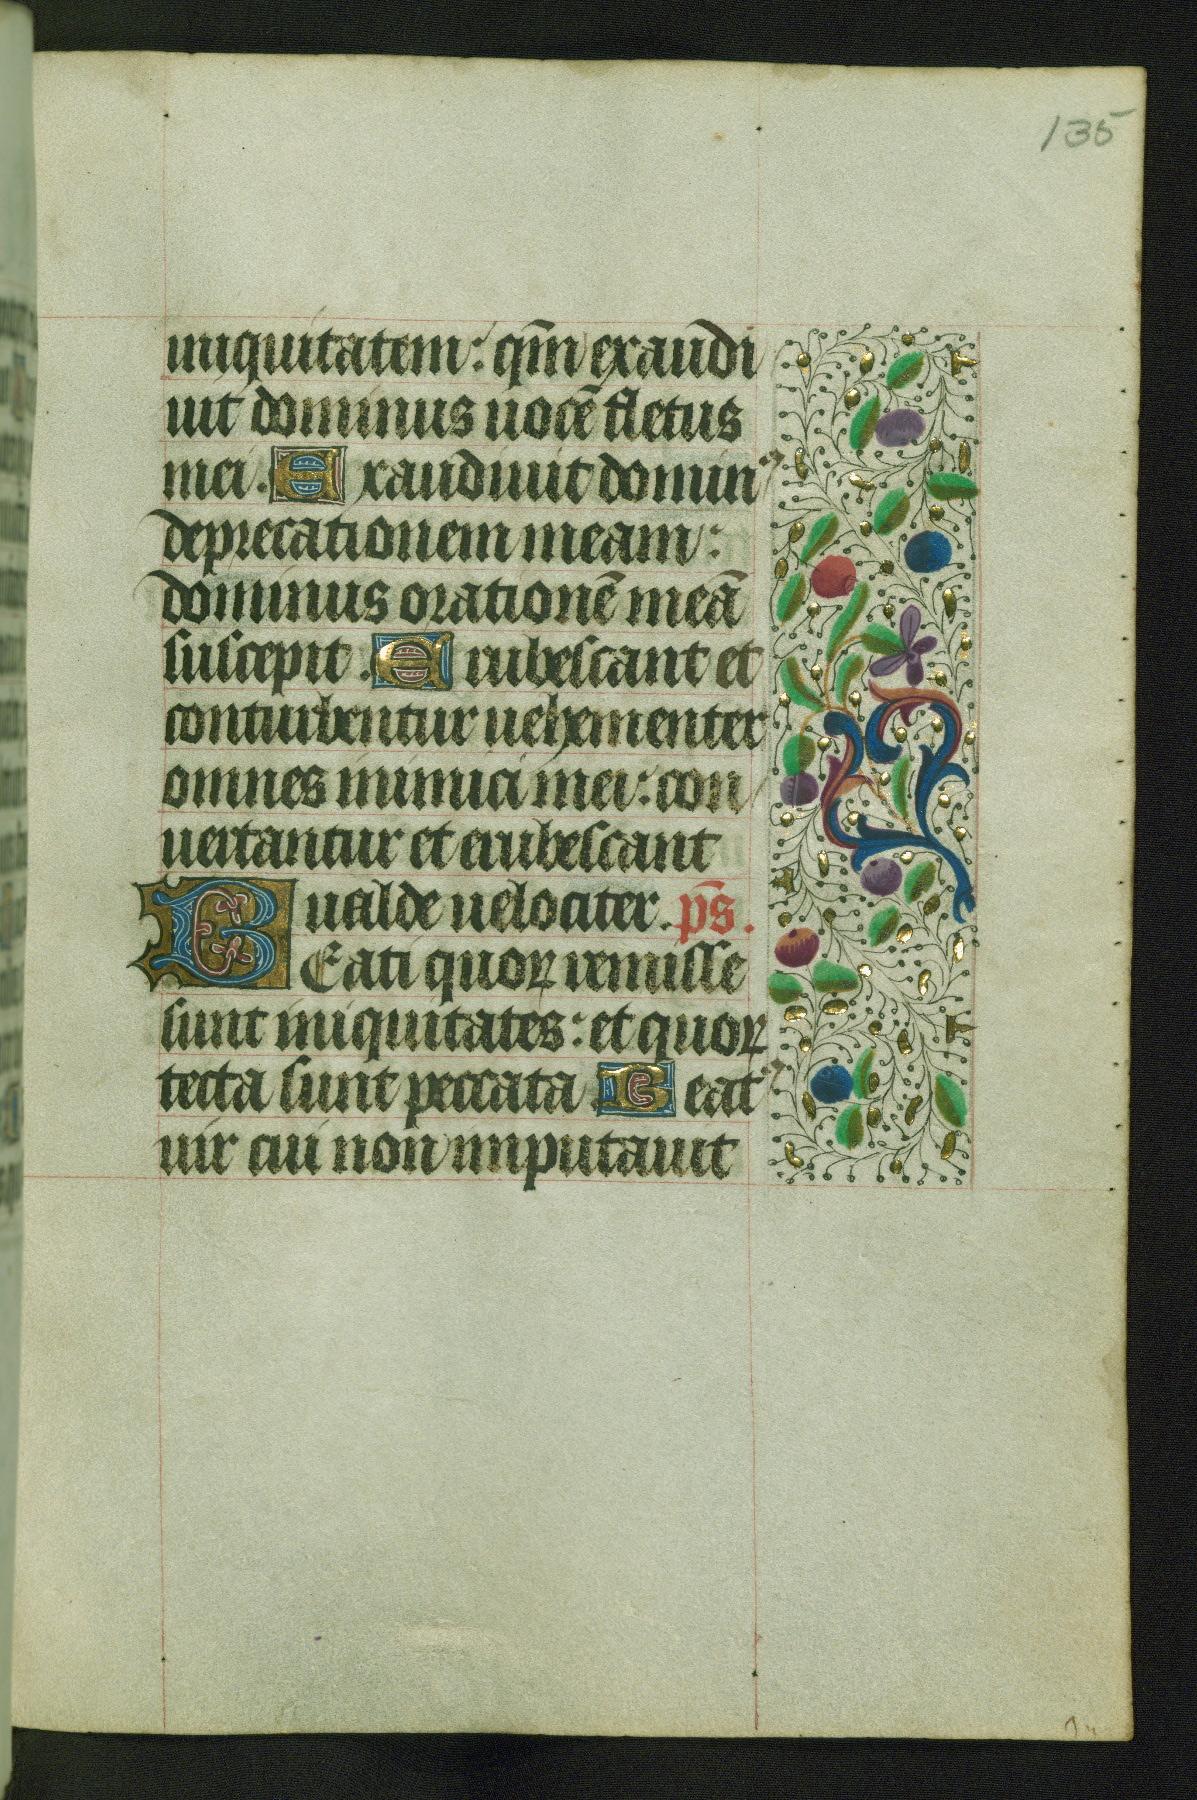 135
iniquitatem: qm̄ exaudi
uit dominus uocē fletus
mei. Exaudiuit domin⁹
deprecationem meam:
dominus orationē meā
suscepit. Erubescant et
conturbentur uehementer
omnes inimici mei: con
uertantur et erubescant
ualde uelociter. p̄s.
BEati quoꝝ remisse
sunt iniquitates: et quoꝝ
tecta sunt peccata Beat⁹
uir cui non imputauit